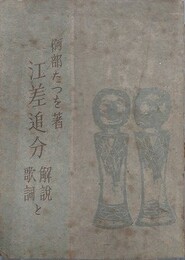 阿部たつを著
江差追分
解說と
歌詞